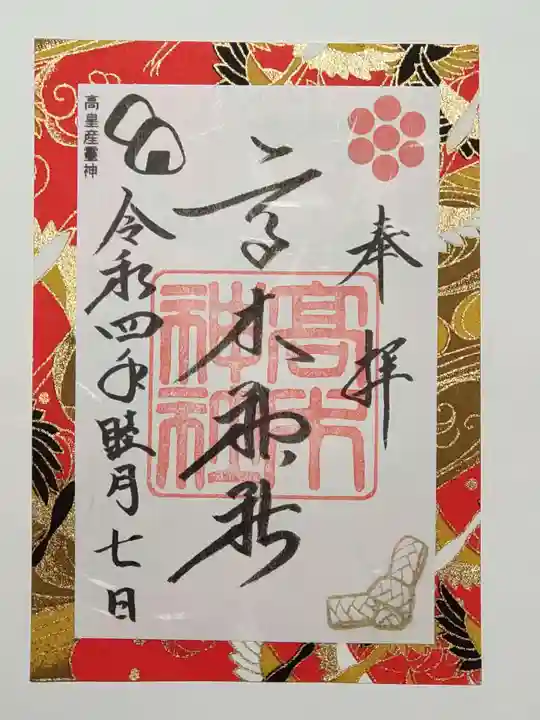 奉拝
高木神社
高木神社
令和四年睦月七日
高皇産靈神